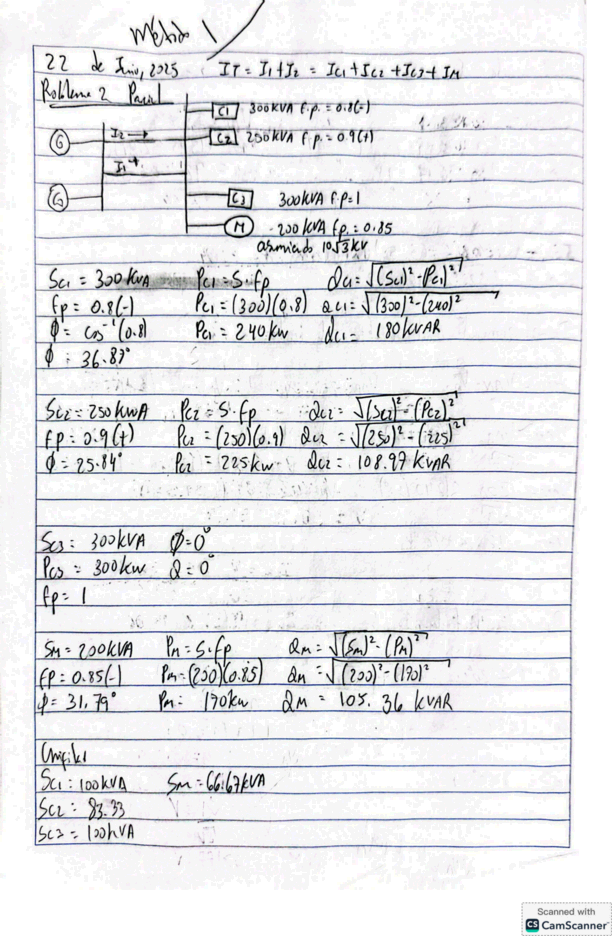 Método 1
22 de Junio, 2025 IT = I1 + I2 = Ic1 + Ic2 + Ic3 + IM
Problema 2 Parcial
C1 300KVA f.p. = 0.8(-)
G I2 → C2 250KVA f.p. = 0.9(+)
I1 →
G C3 300KVA f.p = 1
M 200KVA f.p. = 0.85
10√3 KV
Sc1 = 300KVA Pc1 = S·fp Qc1 = √(Sc1)² - (Pc1)²
fp = 0.8(-) Pc1 = (300)(0.8) Qc1 = √(300)² - (240)²
ϕ = cos⁻¹(0.8) Pc1 = 240kw Qc1 = 180KVAR
ϕ = 36.87°
Sc2 = 250KWA Pc2 = S·fp Qc2 = √(Sc2)² - (Pc2)²
fp = 0.9(+) Pc2 = (250)(0.9) Qc2 = √(250)² - (225)²
ϕ = 25.84° Pc2 = 225kw Qc2 = 108.97 KVAR
Sc3 = 300KVA ϕ = 0°
Pc3 = 300KW Q = 0°
fp = 1
Sm = 200KVA Pm = S·fp Qm = √(Sm)² - (Pm)²
fp = 0.85(-) Pm = (200)(0.85) Qm = √(200)² - (170)²
ϕ = 31.79° Pm = 170kw Qm = 105.36 KVAR
Sc1 = 100KVA Sm = 66.67KVA
Sc2 = 83.33
Sc3 = 100KVA
Scanned with
CS CamScanner